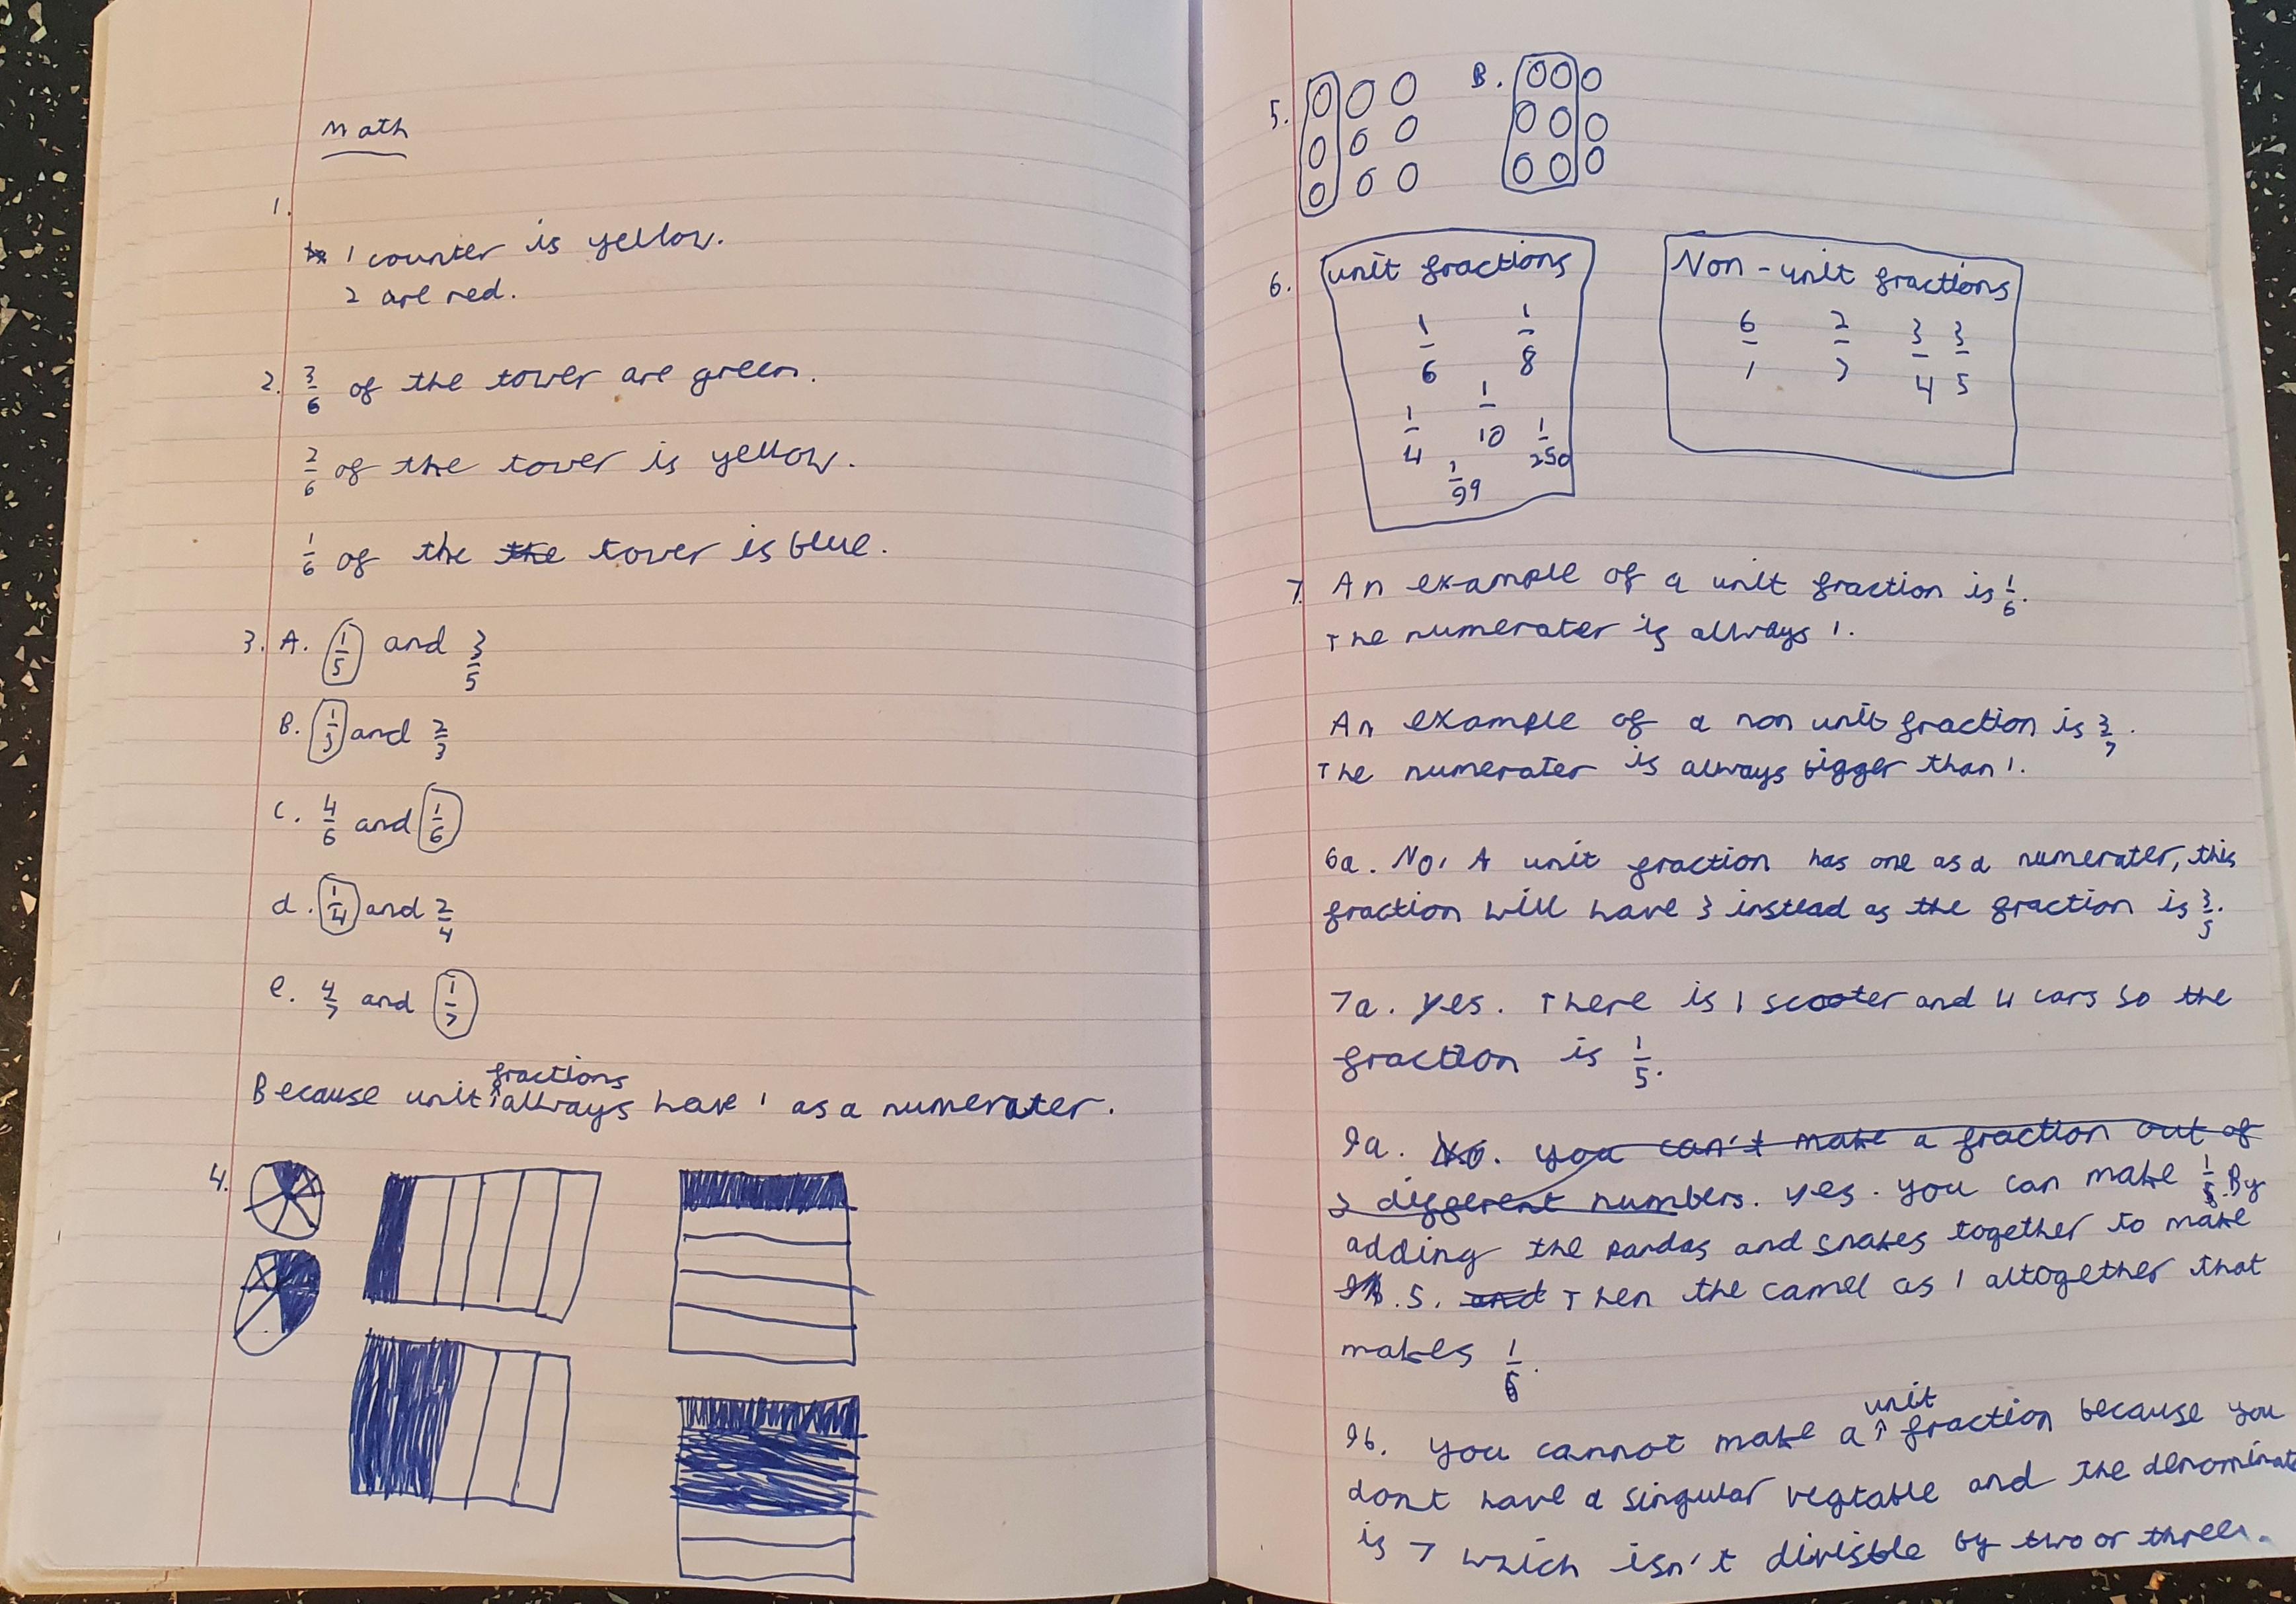 Math
1.
1 counter is yellow.
2 are red.
2. 3/6 of the tower are green.
2/6 of the tower is yellow.
1/6 of the the tower is blue.
3. A. 1/5 and 3/5
B. 1/3 and 2/3
C. 4/6 and 1/6
d. 1/4 and 2/4
e. 4/7 and 1/7
fractions
Because unit ↑ allways have 1 as a numerater.
4.
5.
B.
6. unit fractions
1/6 1/8
1/4 1/10 1/250
1/99
Non-unit fractions
6/1 2/3 3/4 3/5
7. An example of a unit fraction is 1/6.
The numerater is allways 1.
An example of a non unit fraction is 3/7.
The numerater is always bigger than 1.
6a. No, A unit fraction has one as a numerater, this
fraction will have 3 instead as the fraction is 3/5.
7a. Yes. There is 1 scooter and 4 cars so the
fraction is 1/5.
9a. No. You can't make a fraction out of
3 different numbers. Yes. You can make 1/6. By
adding the pandas and snakes together to make
5. and Then the camel as 1 altogether that
makes 1/6.
unit
9b. You cannot make a ↑ fraction because you
dont have a singular vegtable and the denominat
is 7 which isn't divisble by two or three.